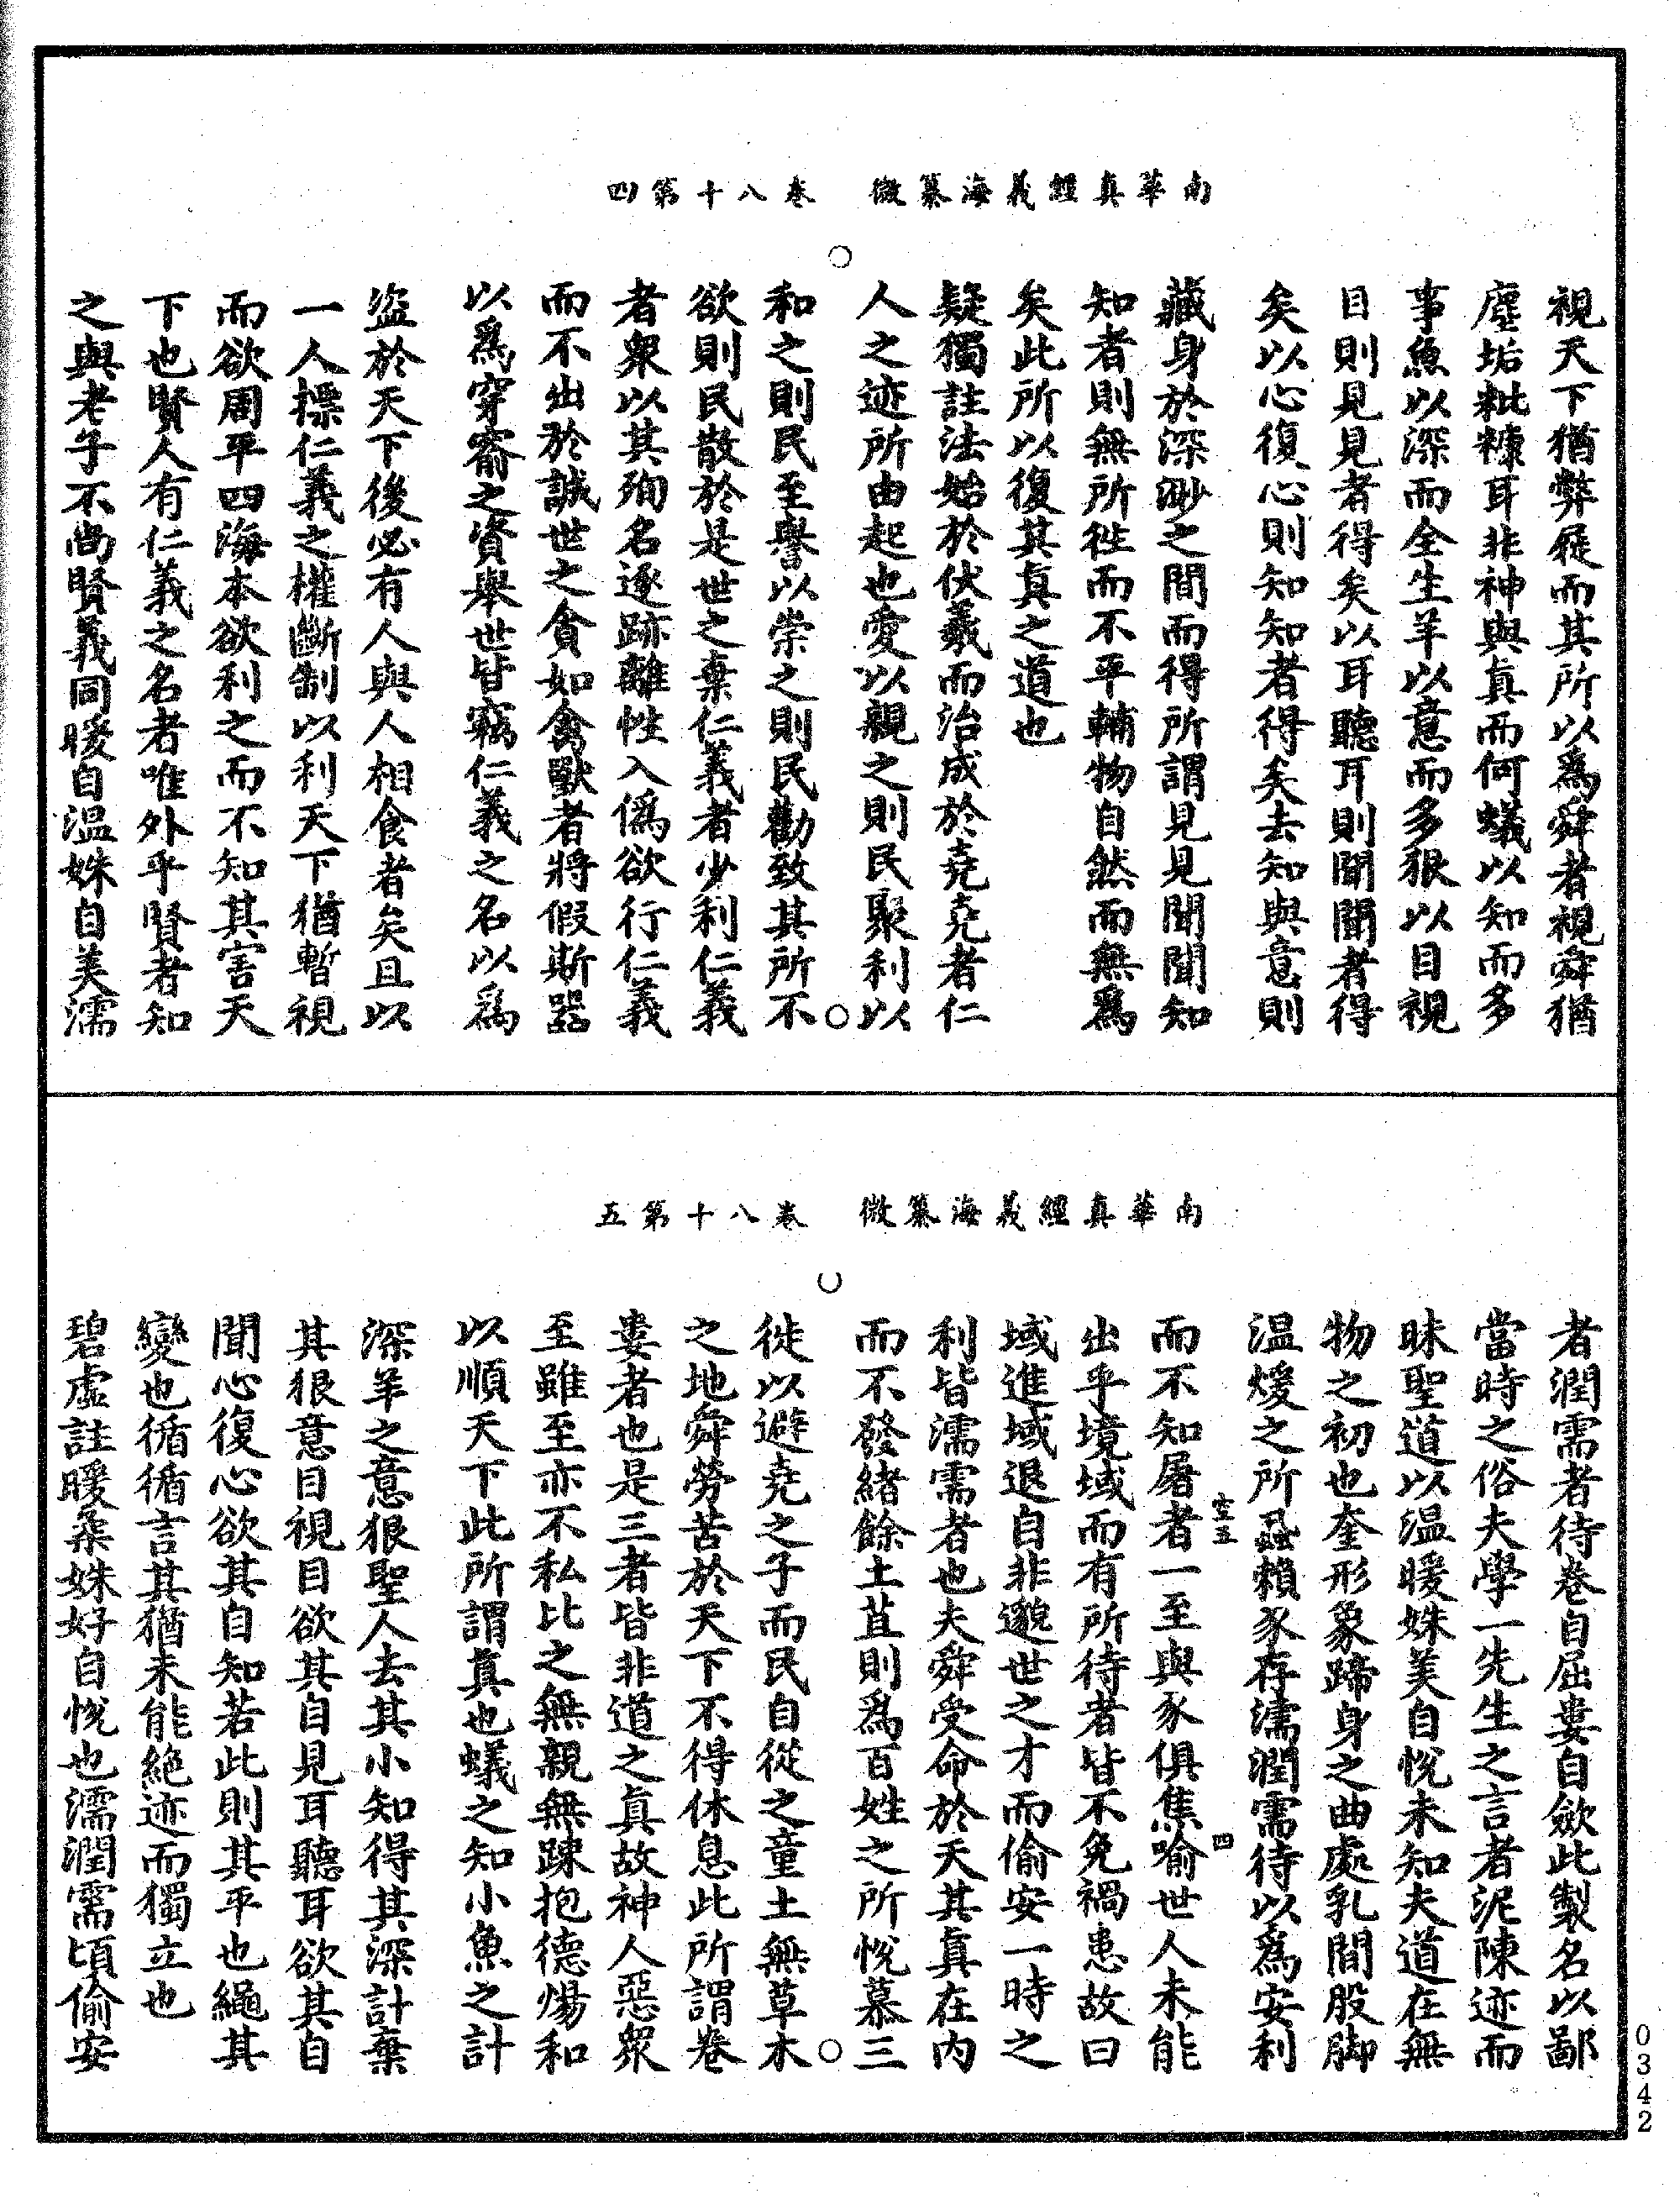 南華真經義海纂微　卷八十第四
視天下猶弊屣而其所以為舜者視舜猶
塵垢粃糠耳非神與真而何蟻以知而多
事魚以深而全生羊以意而多狠以目視
目則見見者得矣以耳聽耳則聞聞者得
矣以心復心則知知者得矣去知與意則
藏身於深渺之間而得所謂見見聞聞知
知者則無所徃而不平輔物自然而無為
矣此所以復其真之道也
疑獨註法始於伏羲而治成於堯堯者仁
人之迹所由起也愛以親之則民聚利以
和之則民至譽以崇之則民勸致其所不
欲則民散於是世之棄仁義者少利仁義
者衆以其殉名逐跡離性入偽欲行仁義
而不出於誠世之貪如禽獸者將假斯器
以為穿窬之資舉世皆竊仁義之名以為
盜於天下後必有人與人相食者矣且以
一人摽仁義之權斷制以利天下猶暫視
而欲周乎四海本欲利之而不知其害天
下也賢人有仁義之名者唯外乎賢者知
之與老子不尚賢義同暖自温姝自美濡
南華真經義海纂微　卷八十第五
者潤需者待卷自屈婁自斂此製名以鄙
當時之俗夫學一先生之言者泥陳迹而
昧聖道以温暖姝美自悅未知夫道在無
物之初也奎形象蹄身之曲處乳間股脚
温煖之所蝨賴豕存濡潤需待以為安利
而不知屠者一至與豕俱焦喻世人未能
空五　四
出乎境域而有所待者皆不免禍患故曰
域進域退自非邈世之才而偷安一時之
利皆濡需者也夫舜受命於天其真在内
而不發緒餘土苴則為百姓之所悅慕三
徙以避堯之子而民自從之童土無草木
之地舜勞苦於天下不得休息此所謂卷
婁者也是三者皆非道之真故神人惡衆
至雖至亦不私比之無親無踈抱德煬和
以順天下此所謂真也蟻之知小魚之計
深羊之意狠聖人去其小知得其深計棄
其狠意目視目欲其自見耳聽耳欲其自
聞心復心欲其自知若此則其平也繩其
變也循循言其猶未能絶迹而獨立也
碧虛註暖柔姝好自悅也濡潤需頃偷安
0342